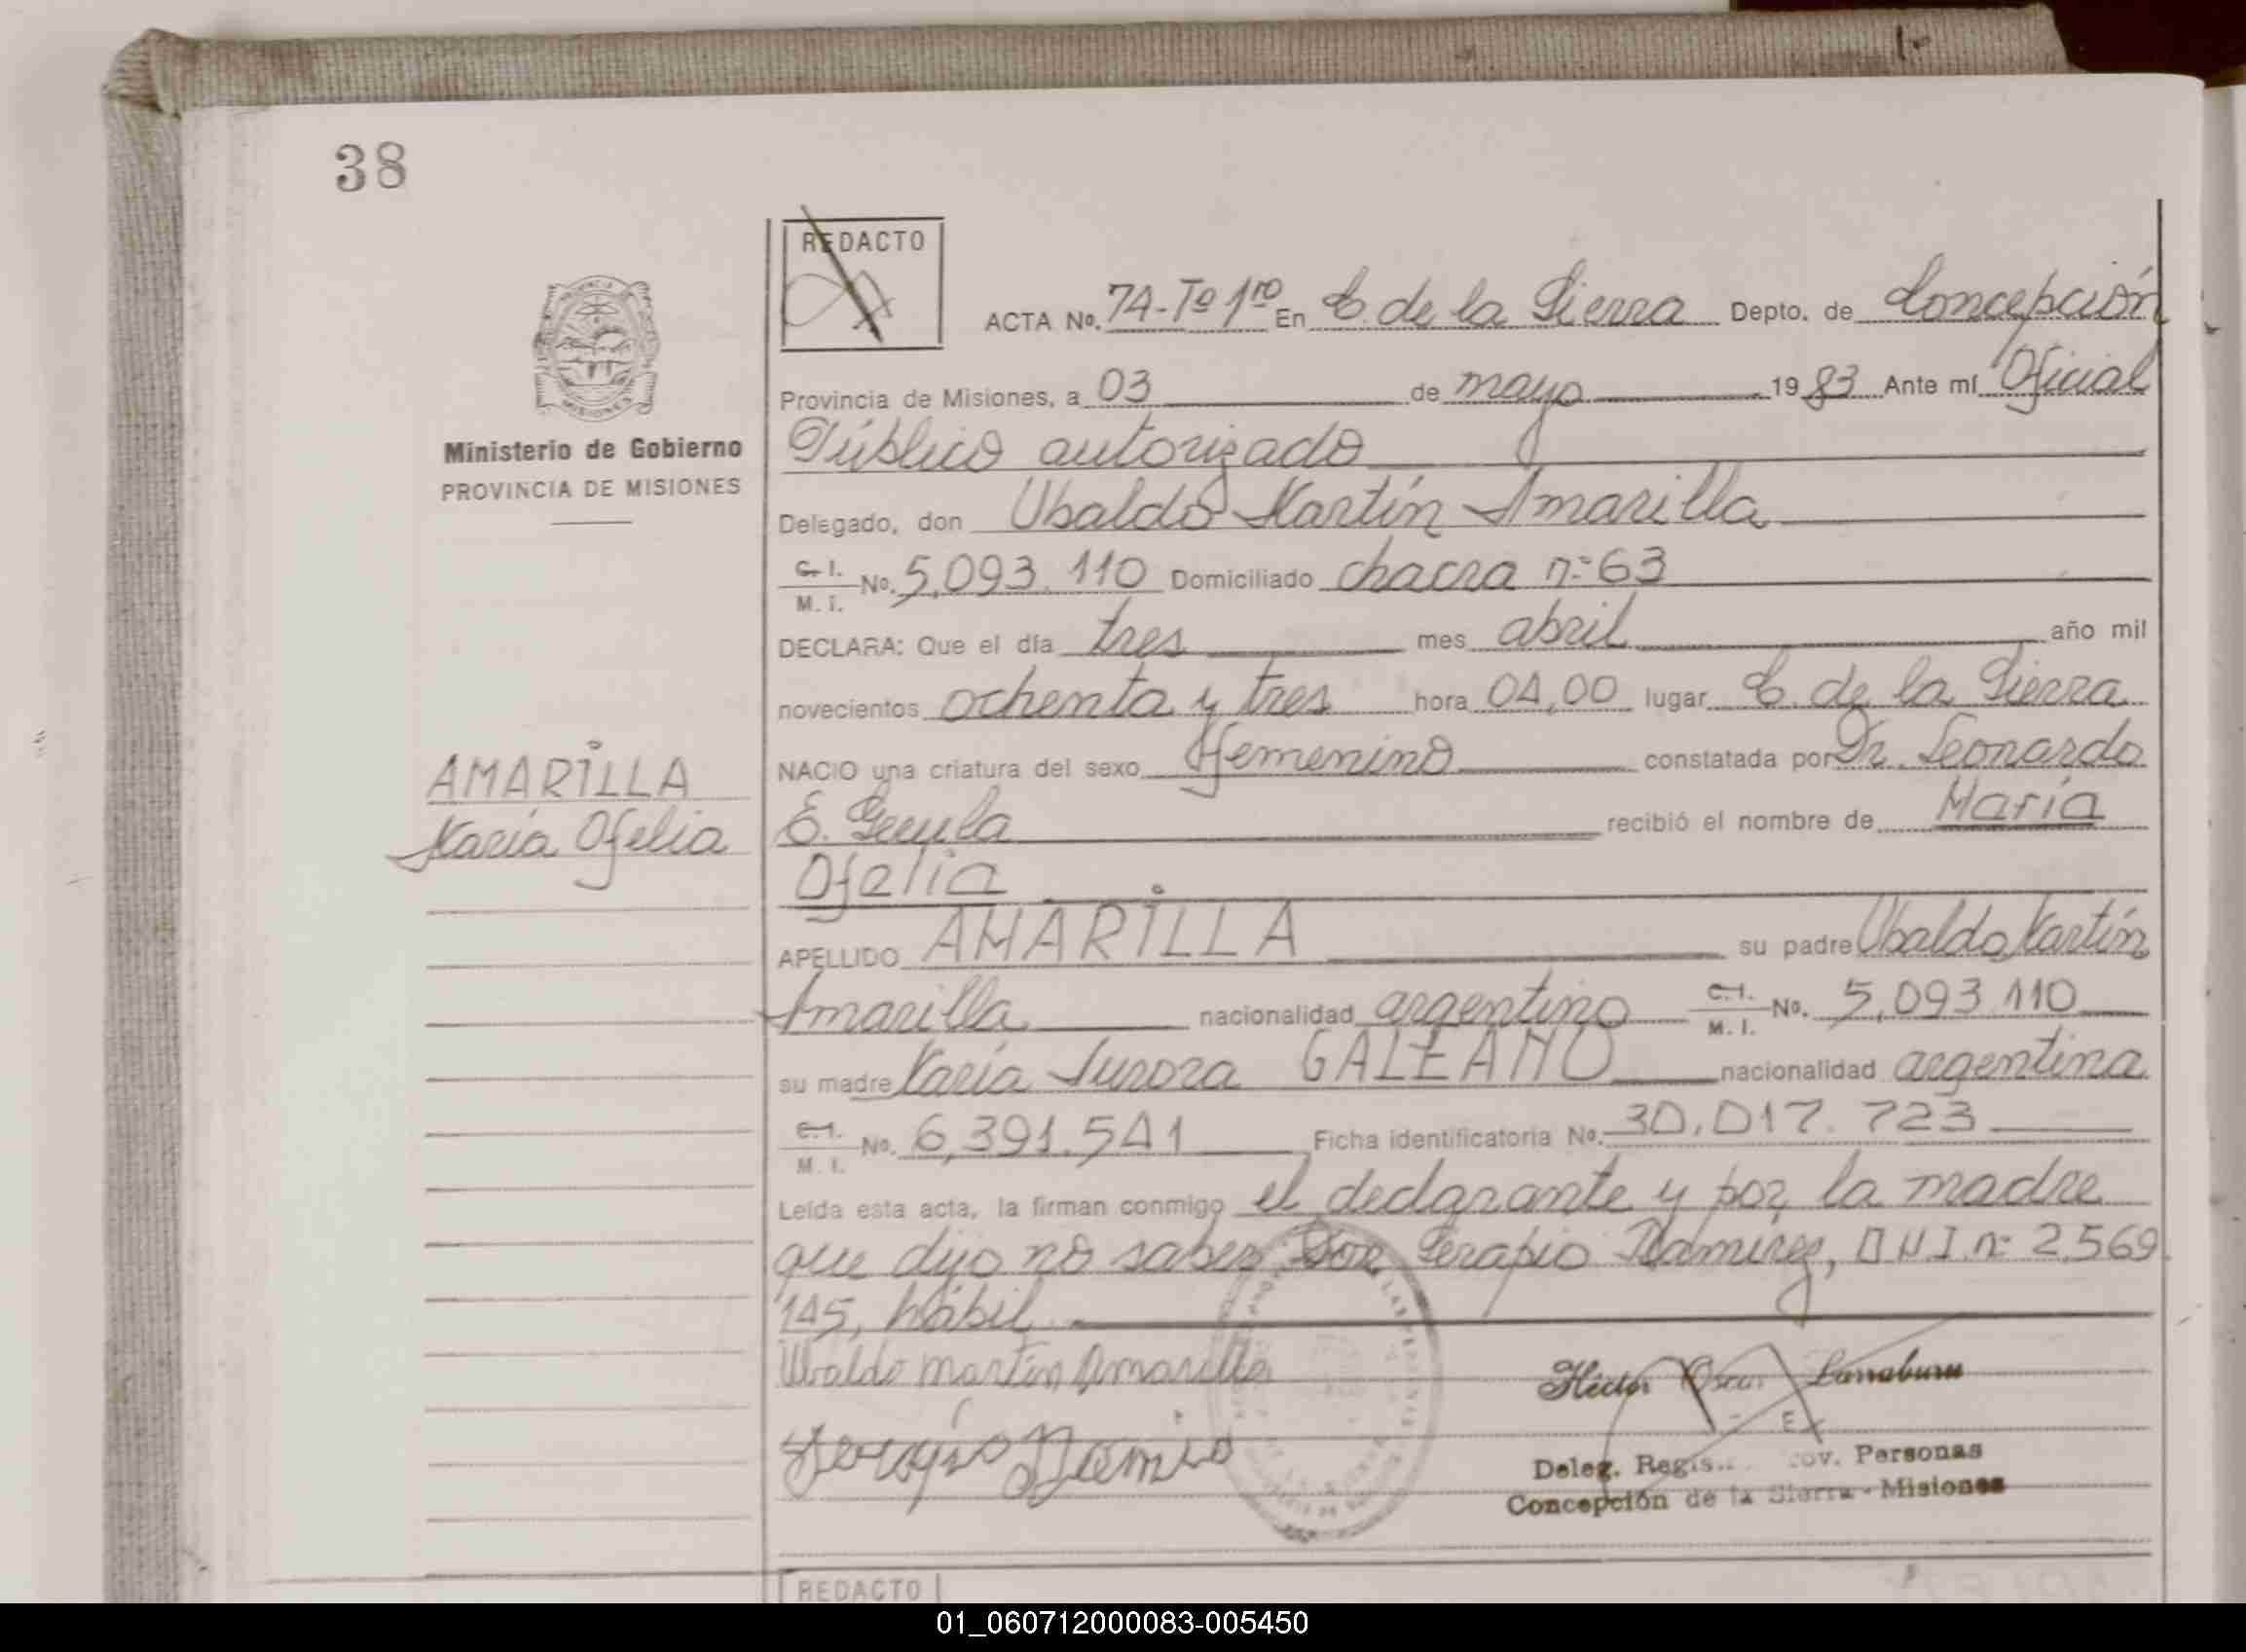 38
REDACTO
ACTA Nº. 74-Tº 1ro En C. de la Sierra Depto. de Concepción
Provincia de Misiones, a 03 de mayo 1983 Ante mí Oficial
Público autorizado
Ministerio de Gobierno
PROVINCIA DE MISIONES
Delegado, don Ubaldo Martín Amarilla
C.I. M.I. Nº. 5,093.110 Domiciliado chacra nº 63
DECLARA: Que el día tres mes abril año mil
novecientos ochenta y tres hora 04,00 lugar C. de la Sierra
NACIO una criatura del sexo femenino constatada por Dr. Leonardo
E. recibió el nombre de María
Ofelia
AMARILLA
María Ofelia
APELLIDO AMARILLA su padre Ubaldo Martín
Amarilla nacionalidad argentino C.I. M.I. Nº. 5,093.110
su madre María Aurora GALEANO nacionalidad argentina
C.I. M.I. Nº. 6,391.541 Ficha identificatoria Nº. 30.017.723
Leída esta acta, la firman conmigo el declarante y por la madre
que dijo no saber Don Serapio Ramirez, DNI nº 2.569.
145, hábil
Ubaldo Martín Amarilla
Héctor Oscar Larraburu
Deleg. Regis. Prov. Personas
Concepción de la Sierra - Misiones
REDACTO
01_060712000083-005450